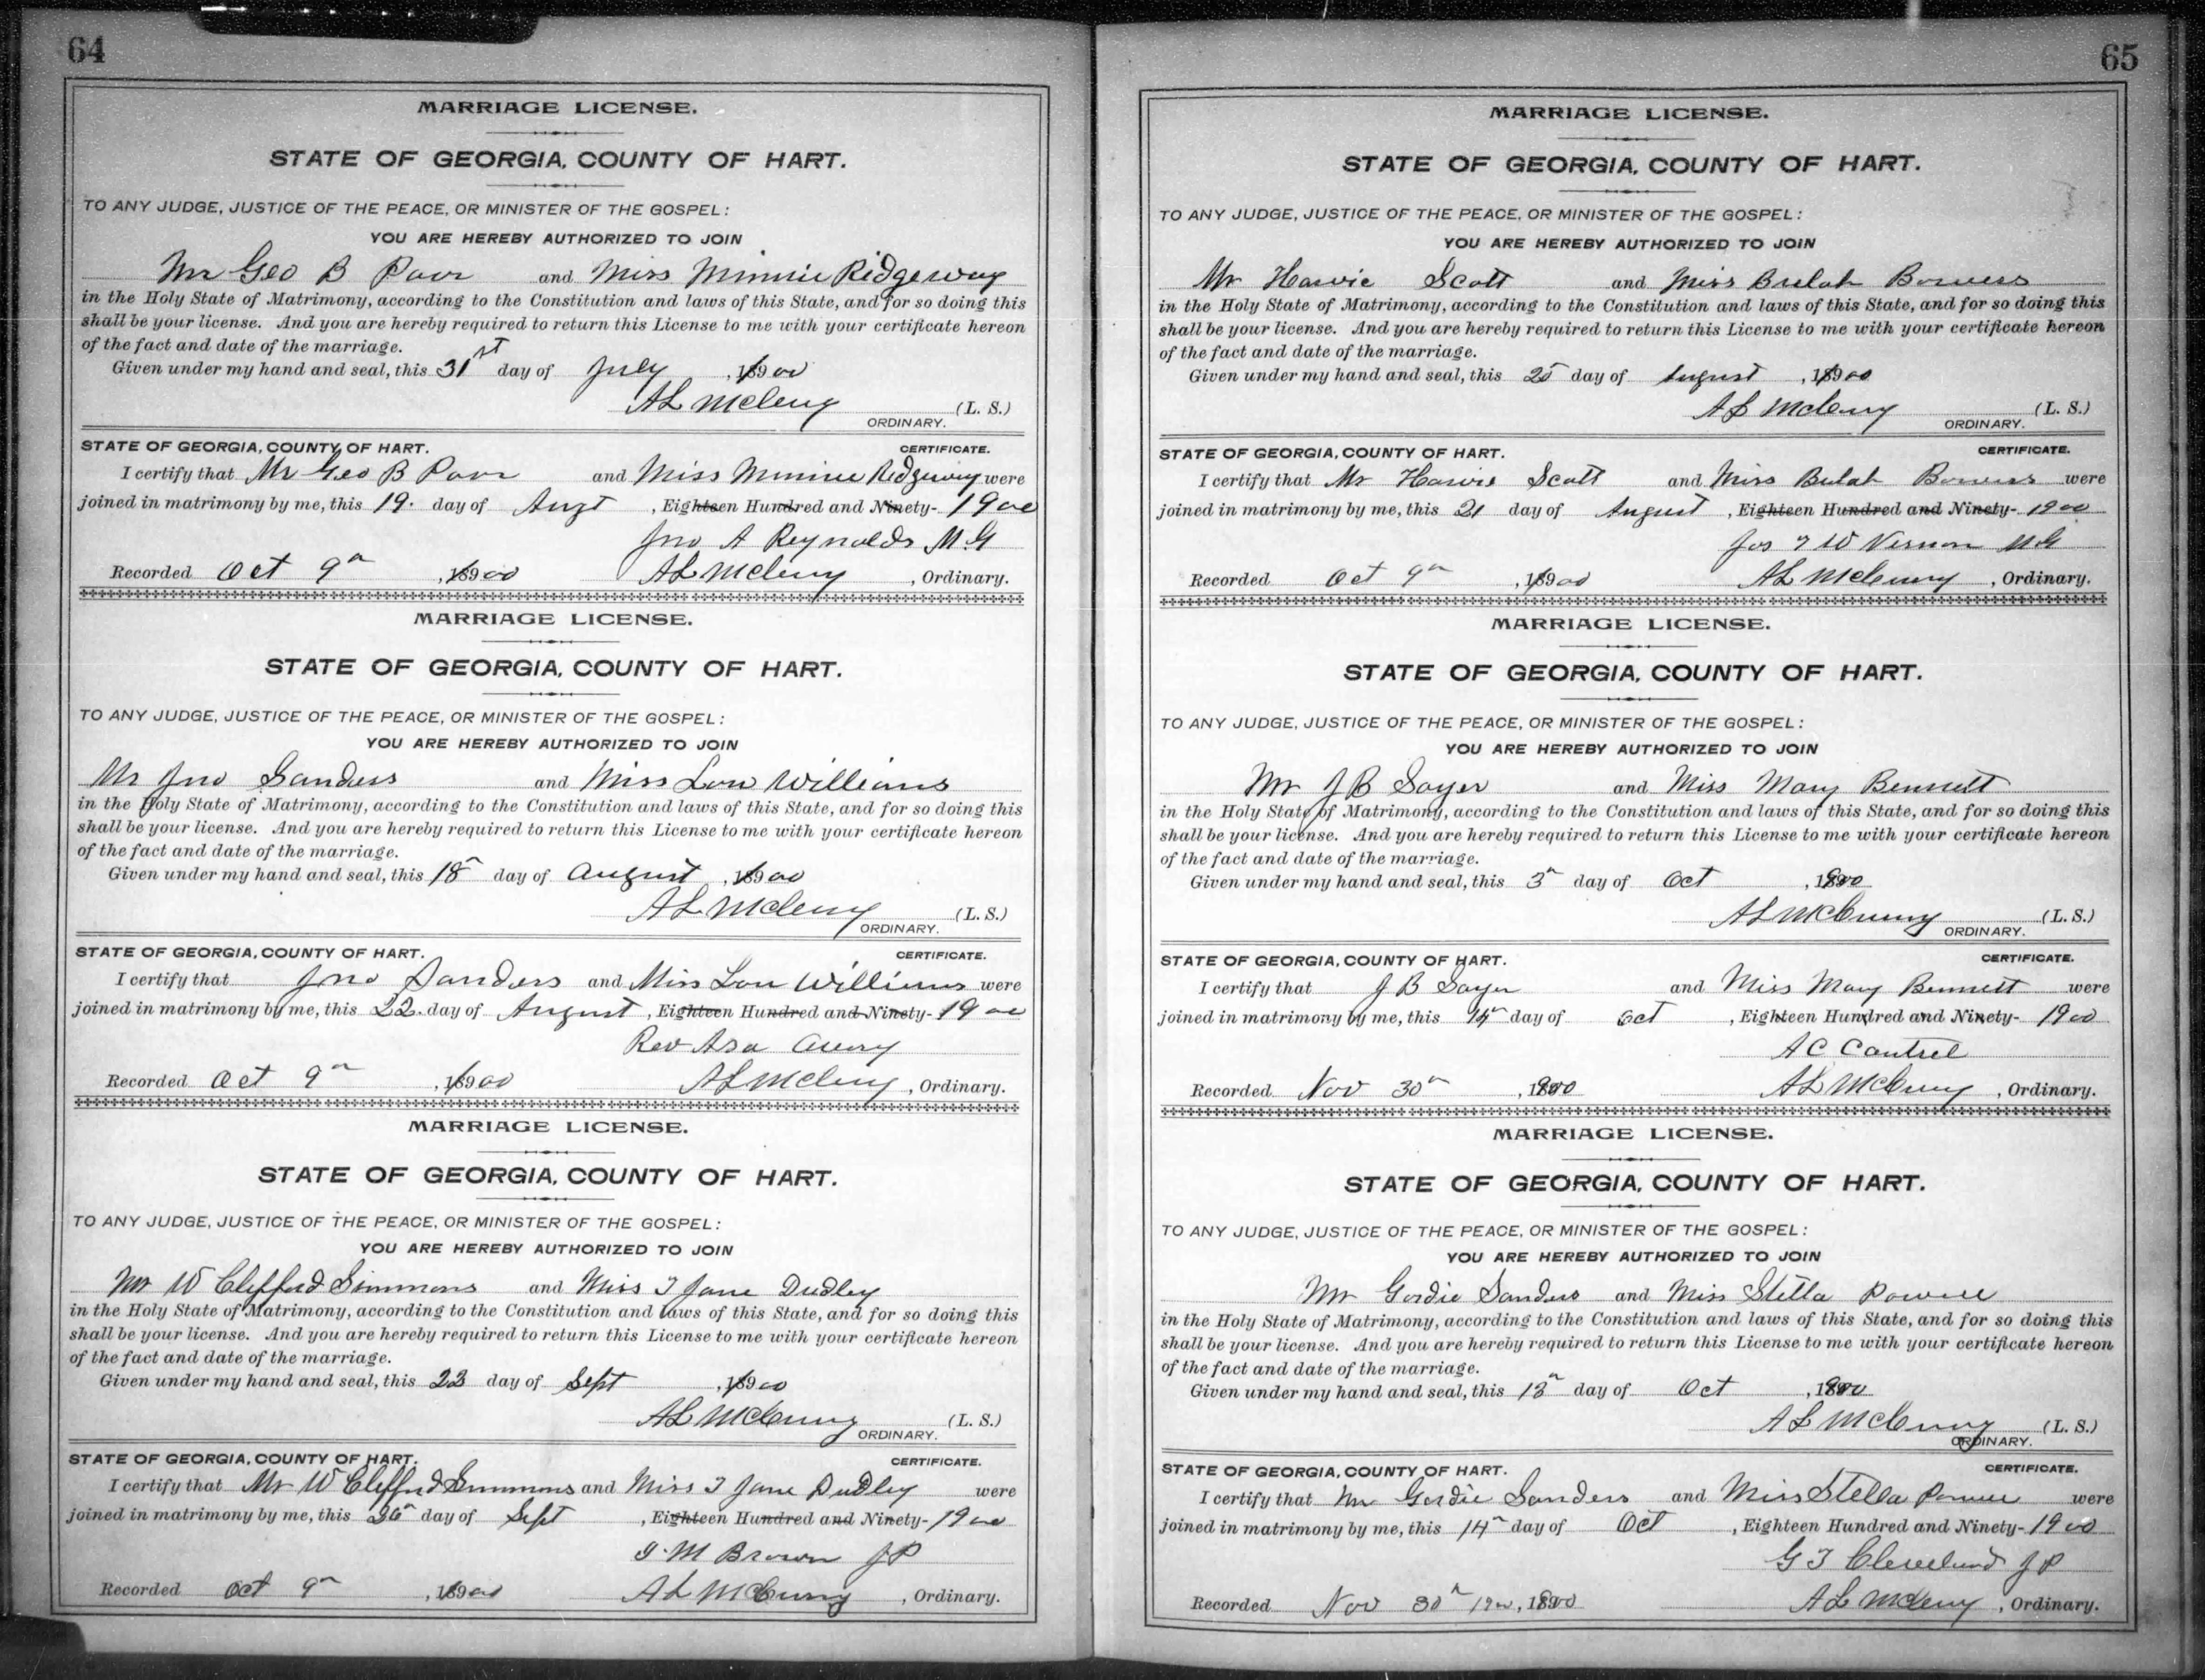 64
MARRIAGE LICENSE.
STATE OF GEORGIA, COUNTY OF HART.
TO ANY JUDGE, JUSTICE OF THE PEACE, OR MINISTER OF THE GOSPEL:
YOU ARE HEREBY AUTHORIZED TO JOIN
Mr Geo B Parr and Miss Minnie Ridgeway
in the Holy State of Matrimony, according to the Constitution and laws of this State, and for so doing this
shall be your license. And you are hereby required to return this License to me with your certificate hereon
of the fact and date of the marriage.
Given under my hand and seal, this 31st day of July, 1900
A L McCurry (L. S.)
ORDINARY.
STATE OF GEORGIA, COUNTY OF HART. CERTIFICATE.
I certify that Mr Geo B Parr and Miss Minnie Ridgeway were
joined in matrimony by me, this 19. day of Augt, Eighteen Hundred and Ninety- 1900
Jno A Reynolds M.G
Recorded Oct 9th, 18900 A L McCurry, Ordinary.
MARRIAGE LICENSE.
STATE OF GEORGIA, COUNTY OF HART.
TO ANY JUDGE, JUSTICE OF THE PEACE, OR MINISTER OF THE GOSPEL:
YOU ARE HEREBY AUTHORIZED TO JOIN
Mr Jno Sanders and Miss Lou Williams
in the Holy State of Matrimony, according to the Constitution and laws of this State, and for so doing this
shall be your license. And you are hereby required to return this License to me with your certificate hereon
of the fact and date of the marriage.
Given under my hand and seal, this 18th day of August, 18900
A L McCurry (L. S.)
ORDINARY.
STATE OF GEORGIA, COUNTY OF HART. CERTIFICATE.
I certify that Jno Sanders and Miss Lou Williams were
joined in matrimony by me, this 22. day of August, Eighteen Hundred and Ninety- 1900
Rev Asa Avery
Recorded Oct 9th, 18900 A L McCurry, Ordinary.
MARRIAGE LICENSE.
STATE OF GEORGIA, COUNTY OF HART.
TO ANY JUDGE, JUSTICE OF THE PEACE, OR MINISTER OF THE GOSPEL:
YOU ARE HEREBY AUTHORIZED TO JOIN
Mr W Clifford Simmons and Miss I Jane Dudley
in the Holy State of Matrimony, according to the Constitution and laws of this State, and for so doing this
shall be your license. And you are hereby required to return this License to me with your certificate hereon
of the fact and date of the marriage.
Given under my hand and seal, this 23 day of Sept, 18900
A L McCurry (L. S.)
ORDINARY.
STATE OF GEORGIA, COUNTY OF HART. CERTIFICATE.
I certify that Mr W Clifford Simmons and Miss I Jane Dudley were
joined in matrimony by me, this day of Sept, Eighteen Hundred and Ninety- 1900
M Brown JP
Recorded Oct 9th, 18900 A L McCurry, Ordinary.
65
MARRIAGE LICENSE.
STATE OF GEORGIA, COUNTY OF HART.
TO ANY JUDGE, JUSTICE OF THE PEACE, OR MINISTER OF THE GOSPEL:
YOU ARE HEREBY AUTHORIZED TO JOIN
Mr Scott and Miss Bulah Bowers
in the Holy State of Matrimony, according to the Constitution and laws of this State, and for so doing this
shall be your license. And you are hereby required to return this License to me with your certificate hereon
of the fact and date of the marriage.
Given under my hand and seal, this day of August, 18900
A L McCurry (L. S.)
ORDINARY.
STATE OF GEORGIA, COUNTY OF HART. CERTIFICATE.
I certify that Mr Scott and Miss Bulah Bowers were
joined in matrimony by me, this 21 day of August, Eighteen Hundred and Ninety- 1900
Jos W Vernon M G
Recorded Oct 9th, 18900 A L McCurry, Ordinary.
MARRIAGE LICENSE.
STATE OF GEORGIA, COUNTY OF HART.
TO ANY JUDGE, JUSTICE OF THE PEACE, OR MINISTER OF THE GOSPEL:
YOU ARE HEREBY AUTHORIZED TO JOIN
Mr J B Sayer and Miss Mary Bennett
in the Holy State of Matrimony, according to the Constitution and laws of this State, and for so doing this
shall be your license. And you are hereby required to return this License to me with your certificate hereon
of the fact and date of the marriage.
Given under my hand and seal, this 3th day of Oct, 1900
A L McCurry (L. S.)
ORDINARY.
STATE OF GEORGIA, COUNTY OF HART. CERTIFICATE.
I certify that J B Sayer and Miss Mary Bennett were
joined in matrimony by me, this 14th day of Oct, Eighteen Hundred and Ninety- 1900
A C Cantrel
Recorded Nov 30th, 1900 A L McCurry, Ordinary.
MARRIAGE LICENSE.
STATE OF GEORGIA, COUNTY OF HART.
TO ANY JUDGE, JUSTICE OF THE PEACE, OR MINISTER OF THE GOSPEL:
YOU ARE HEREBY AUTHORIZED TO JOIN
Mr Gordie Sanders and Miss Stella Power
in the Holy State of Matrimony, according to the Constitution and laws of this State, and for so doing this
shall be your license. And you are hereby required to return this License to me with your certificate hereon
of the fact and date of the marriage.
Given under my hand and seal, this 13th day of Oct, 1900
A L McCurry (L. S.)
ORDINARY.
STATE OF GEORGIA, COUNTY OF HART. CERTIFICATE.
I certify that Mr Gordie Sanders and Miss Stella Power were
joined in matrimony by me, this 14th day of Oct, Eighteen Hundred and Ninety- 1900
G T Cleveland J P
Recorded Nov 30th 1900, 1900 A L McCurry, Ordinary.